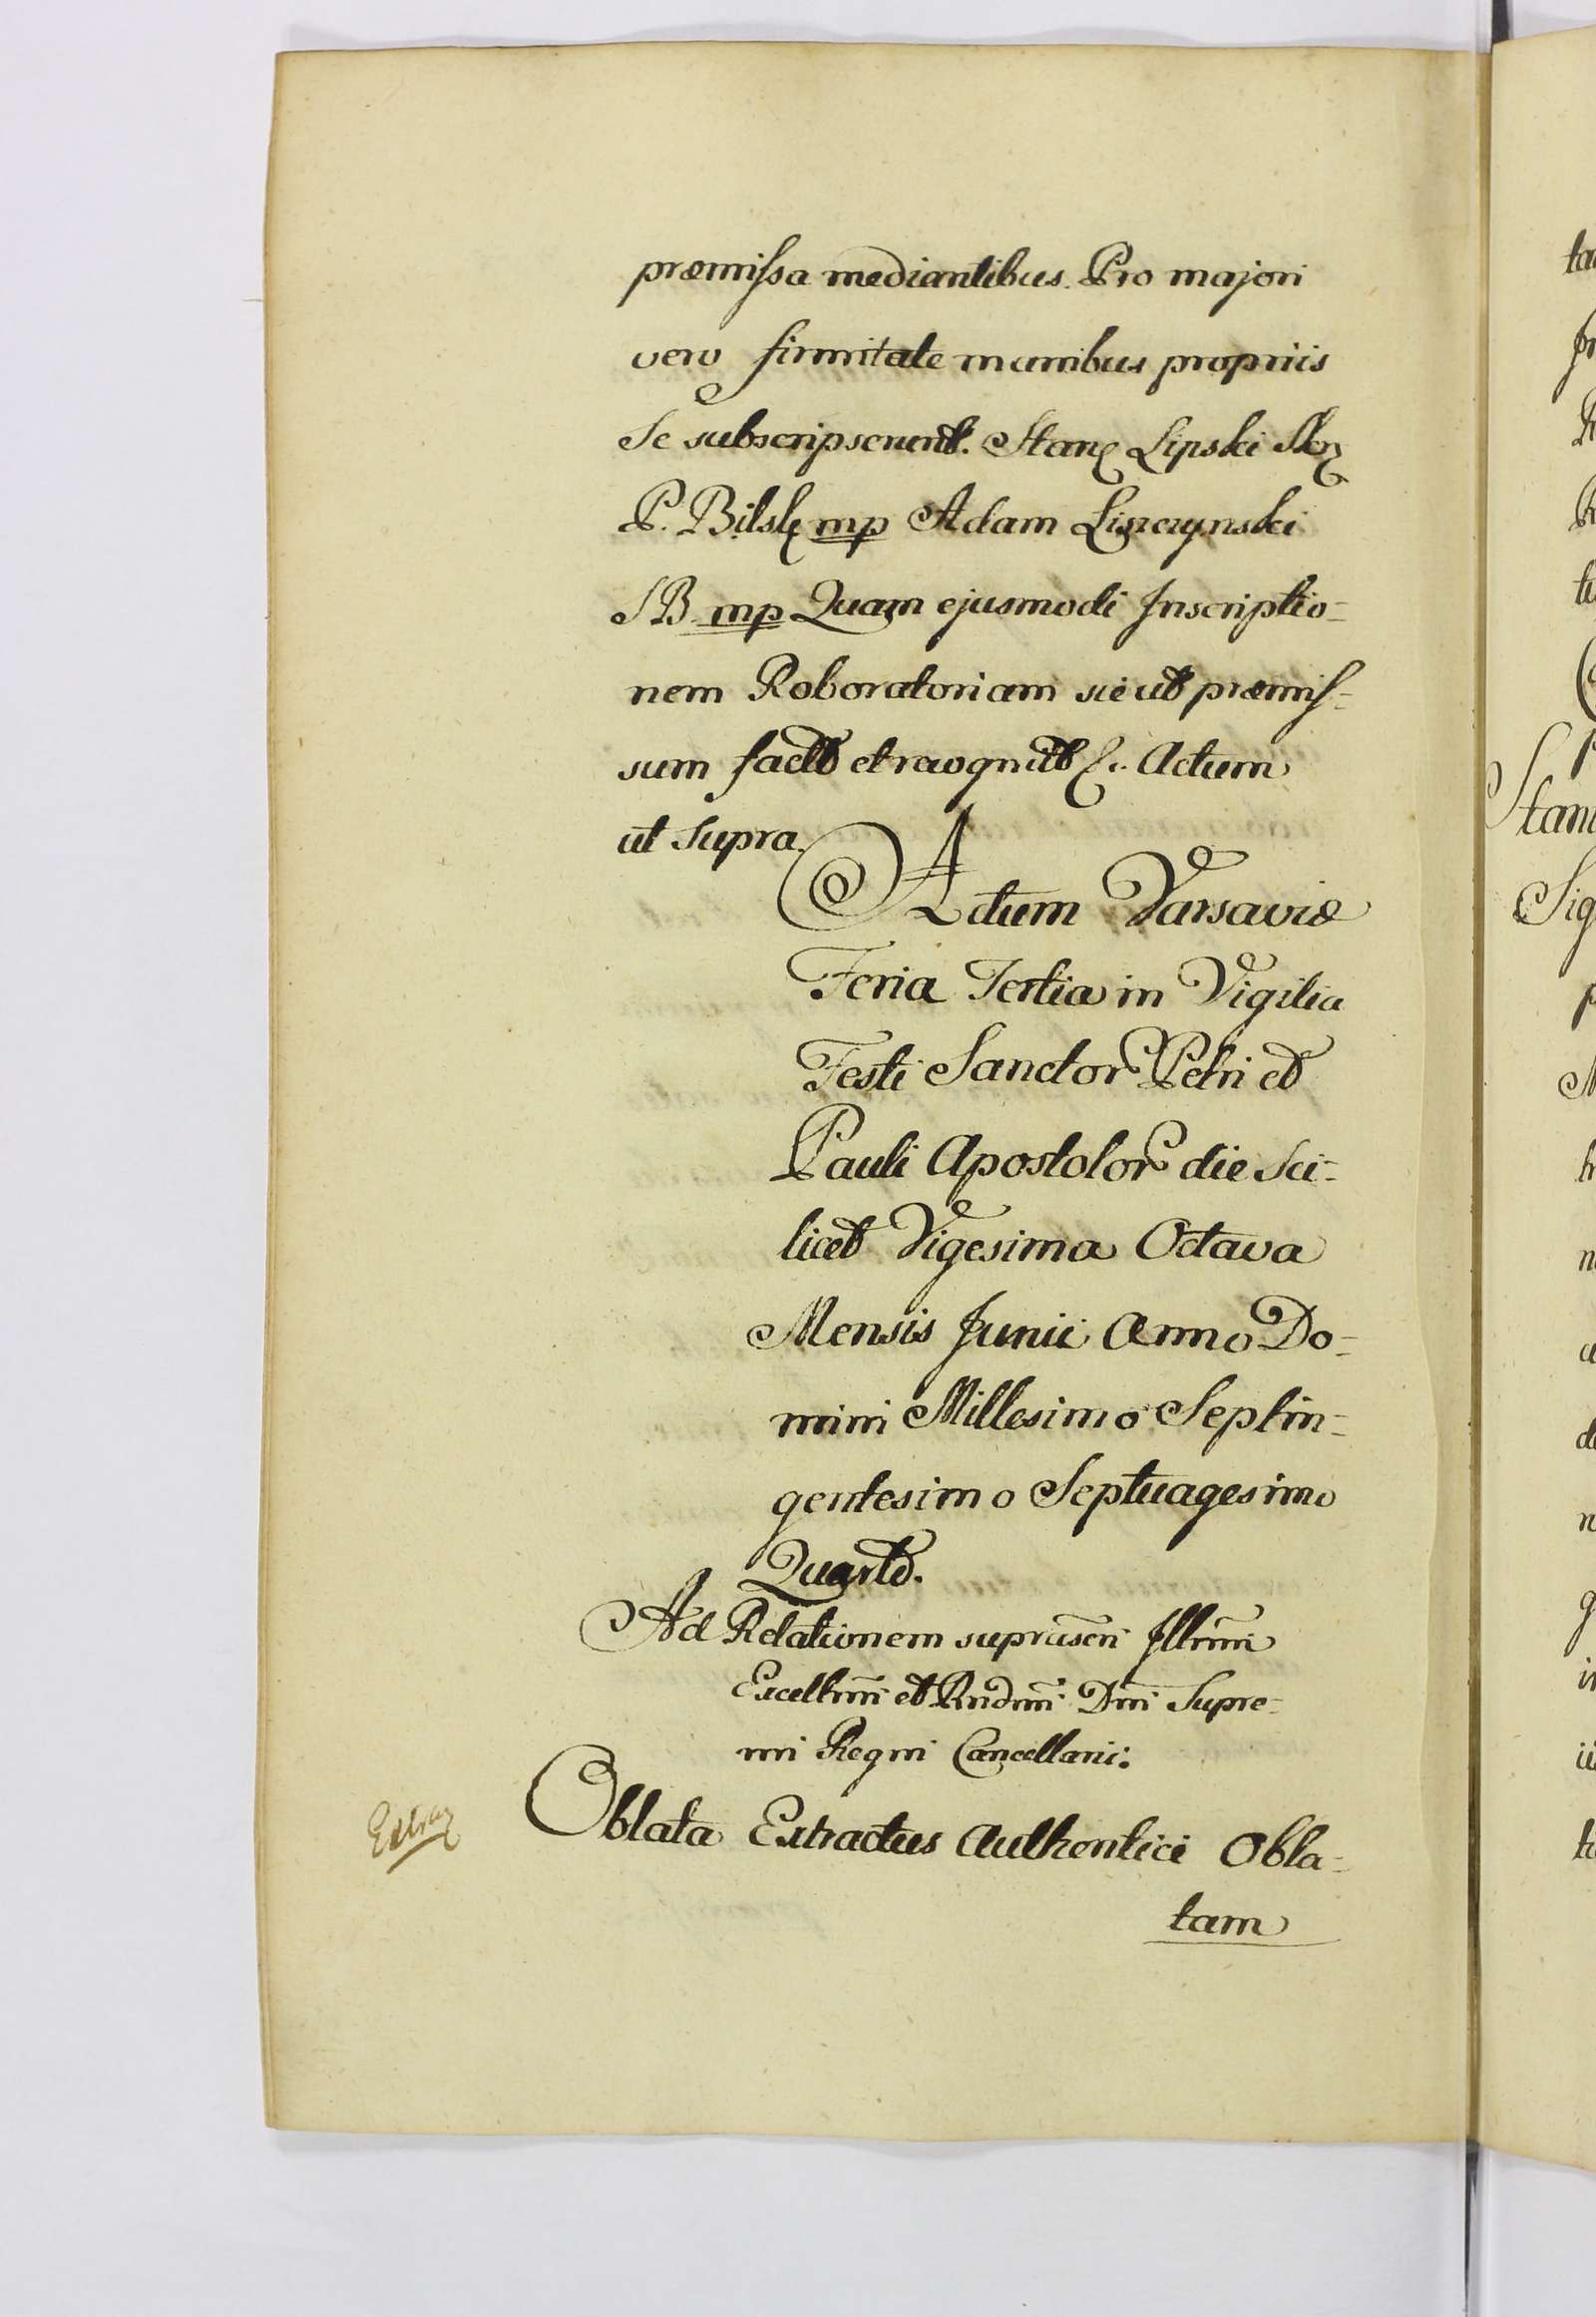 præmissa mediantibus. Pro majori
vero firmitate manibus propriis
Se subscripserunt. Stan Lipski
P. Bilsk mp Adam Liszczynski
SB. mp Quam ejusmodi Inscriptio-
nem Roboratoriam sicut præmis-
sum factt et recognitt &. Actum
ut Supra.
Actum Varsaviæ
Feria Tertia in Vigilia
Festi Sanctor Petri et
Pauli Apostolor die Sci-
licet Vigesima Octava
Mensis Junii Anno Do-
mini Millesimo Septin-
gentesimo Septuagesimo
Quarto.
Ad Relationem suprascri Illrmi
Excellmi et Rndmi Dni Supre-
mi Regni Cancellarii.
Extra
Oblata Extractus Authentici Obla-
tam
ta
Stani
Sig